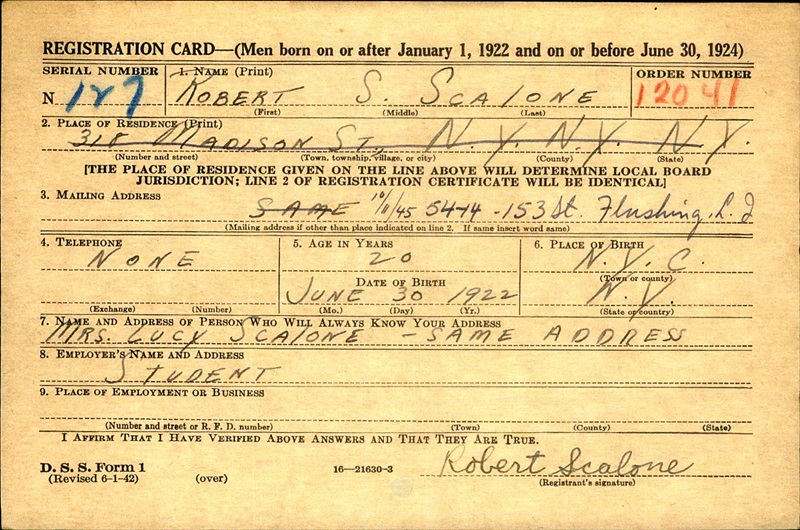 REGISTRATION CARD—(Men born on or after January 1, 1922 and on or before June 30, 1924)
SERIAL NUMBER 1. NAME (Print) ORDER NUMBER
N 127 ROBERT S. SCALONE 12041
(First) (Middle) (Last)
2. PLACE OF RESIDENCE (Print)
318 MADISON ST., N.Y. N.Y. N.Y.
(Number and street) (Town, township, village, or city) (County) (State)
[THE PLACE OF RESIDENCE GIVEN ON THE LINE ABOVE WILL DETERMINE LOCAL BOARD
JURISDICTION; LINE 2 OF REGISTRATION CERTIFICATE WILL BE IDENTICAL]
3. MAILING ADDRESS
SAME 10/11/45 54-14 -153 St. Flushing, L.I
(Mailing address if other than place indicated on line 2. If same insert word same)
4. TELEPHONE 5. AGE IN YEARS 6. PLACE OF BIRTH
NONE 20 N.Y.C.
(Town or county)
DATE OF BIRTH
JUNE 30 1922 N.Y.
(Exchange) (Number) (Mo.) (Day) (Yr.) (State or country)
7. NAME AND ADDRESS OF PERSON WHO WILL ALWAYS KNOW YOUR ADDRESS
MRS. LUCY SCALONE - SAME ADDRESS
8. EMPLOYER'S NAME AND ADDRESS
STUDENT
9. PLACE OF EMPLOYMENT OR BUSINESS
(Number and street or R. F. D. number) (Town) (County) (State)
I AFFIRM THAT I HAVE VERIFIED ABOVE ANSWERS AND THAT THEY ARE TRUE.
D. S. S. Form 1
(Revised 6-1-42) (over) 16—21630-3 Robert Scalone
(Registrant's signature)